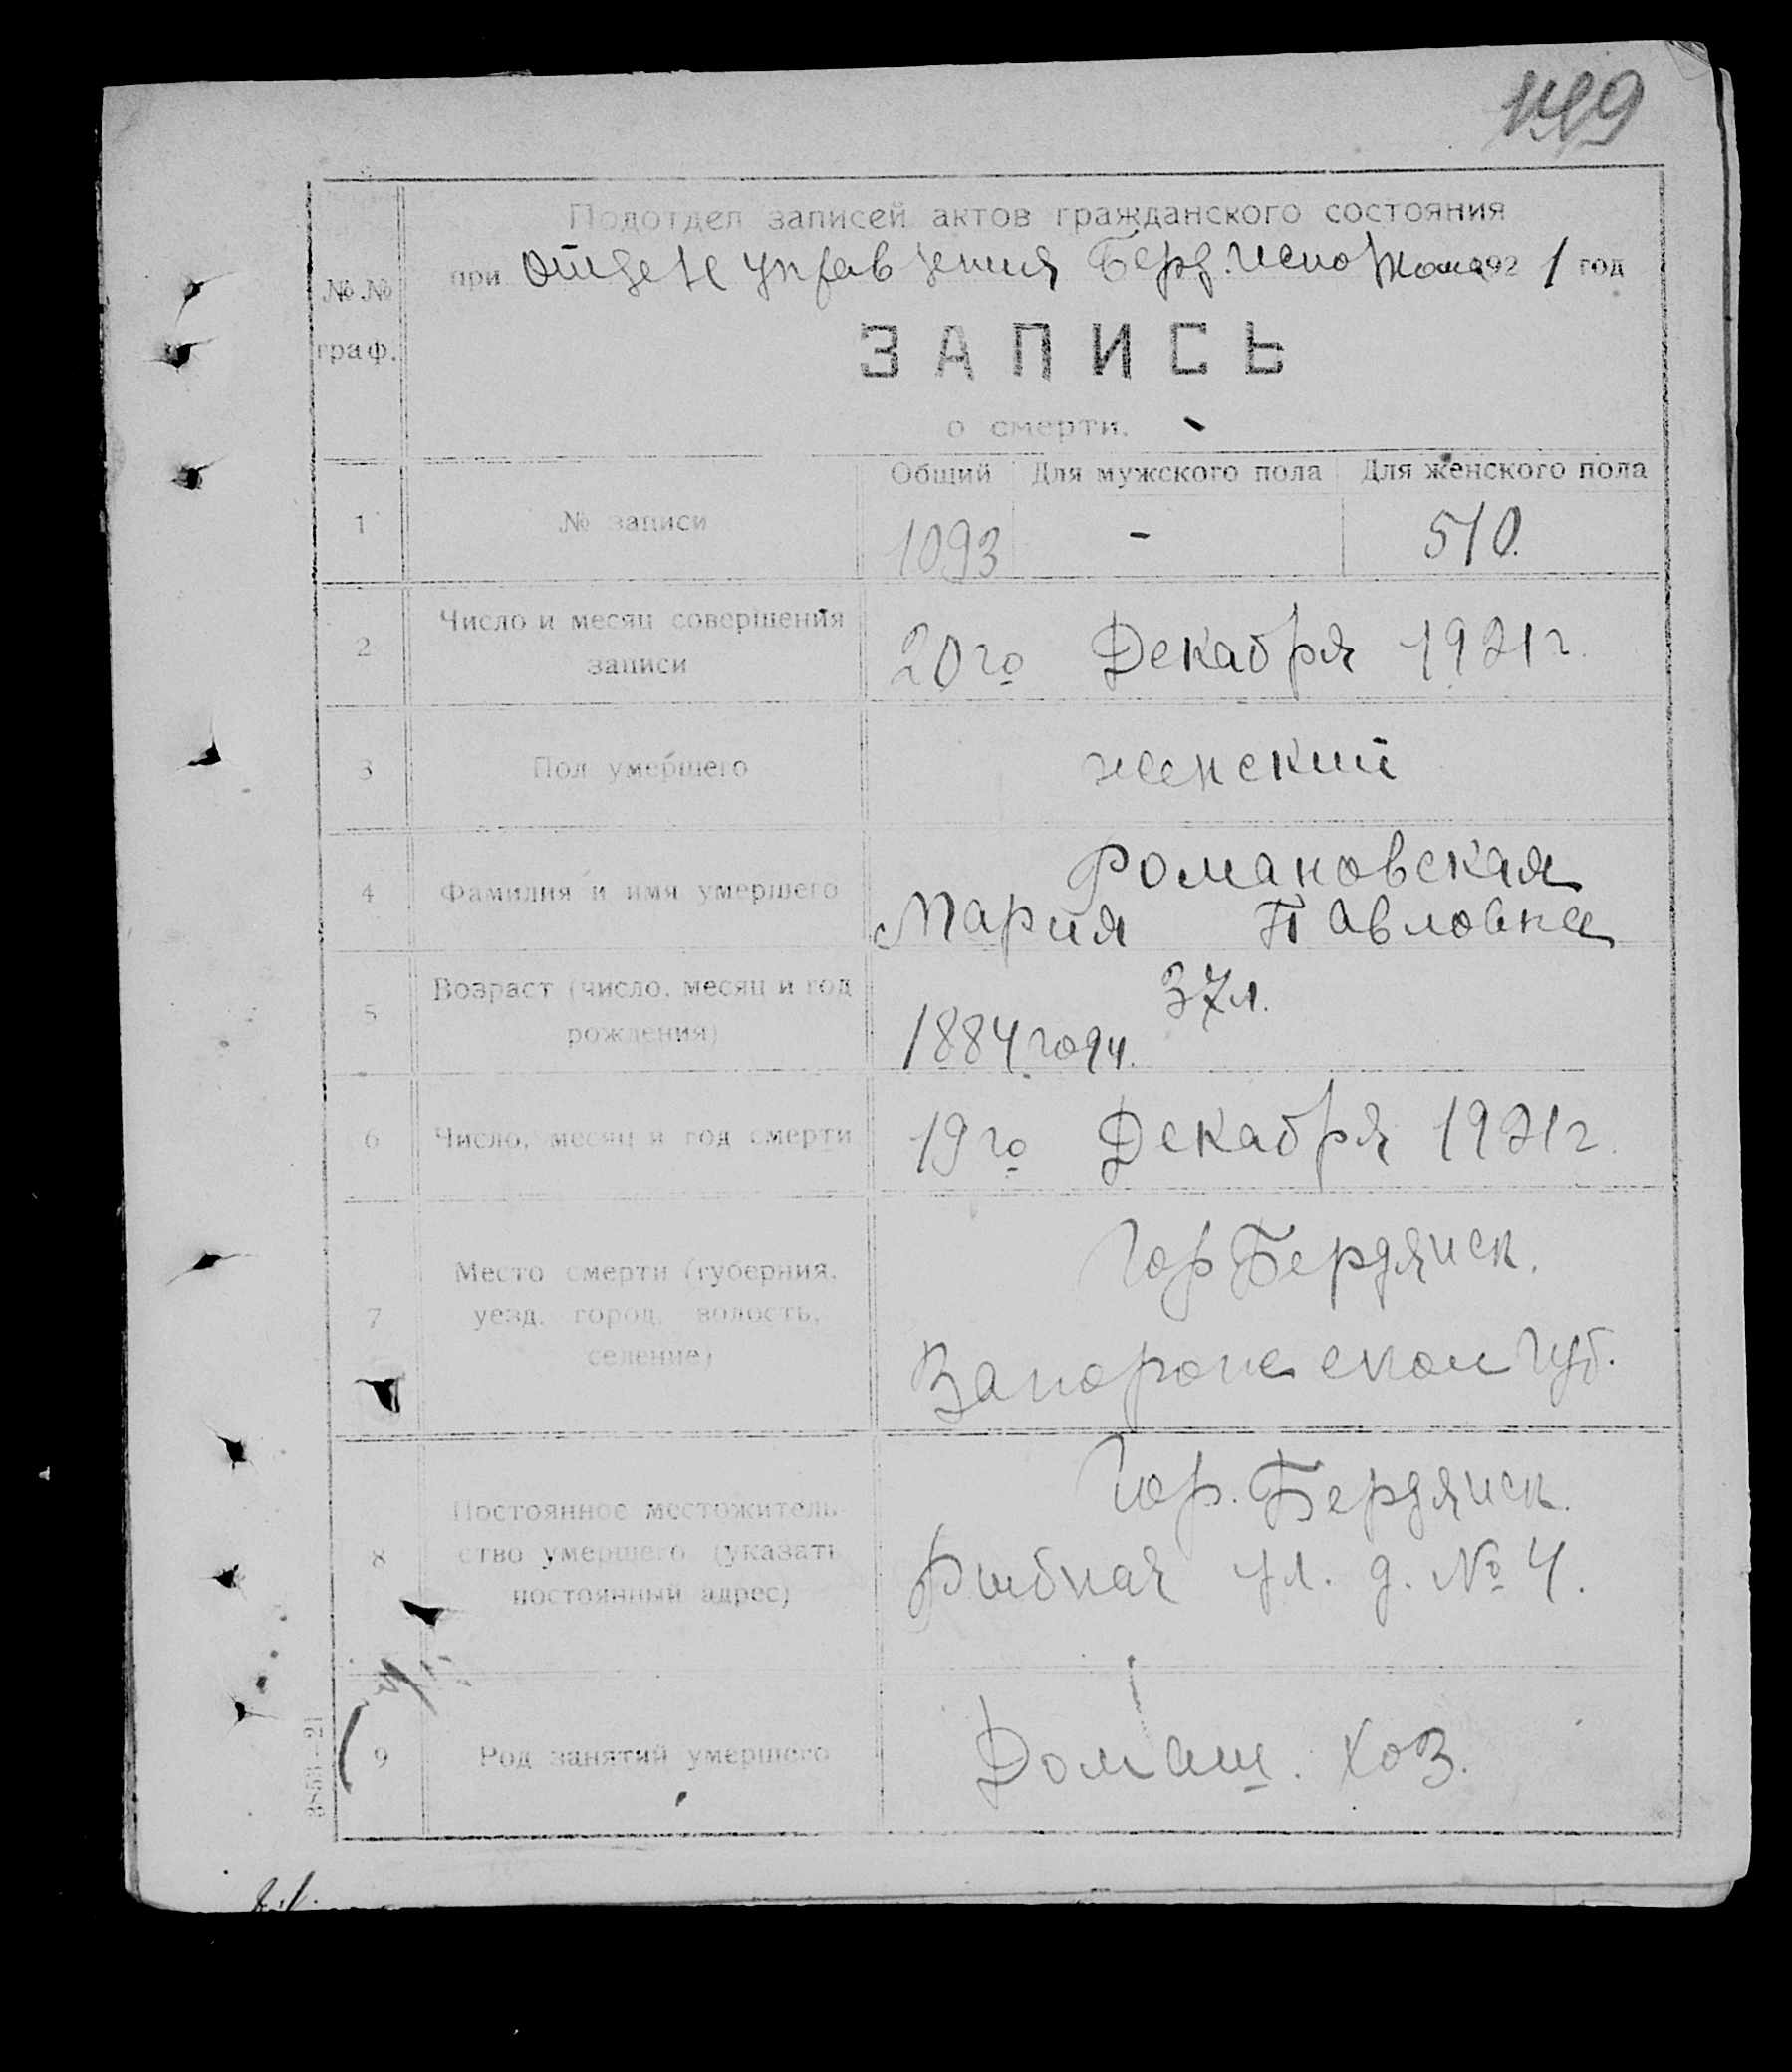 Подотдел записей актов гражданского состояния
при Отделе управления Берд. Исполкома 1921 год
№.№
граф.
ЗАПИСЬ
о смерти.
Общий Для мужского пола Для женского пола
1 № записи 1093 - 510.
2 Число и месяц совершения
записи 20го Декабря 1921 г.
3 Пол умершего женский
4 Фамилия и имя умершего Романовская
Мария Павловна
5 Возраст (число, месяц и год
рождения) 37 л.
1884 году.
6 Число, месяц и год смерти 19го Декабря 1921 г.
7 Место смерти (губерния,
уезд, город, волость,
селение) Гор Бердянск.
Запорожской Губ.
8 Постоянное местожитель-
ство умершего (указать
постоянный адрес) Гор. Бердянск.
Рыбная ул. д. № 4.
9 Род занятий умершего Домаш. Хоз.